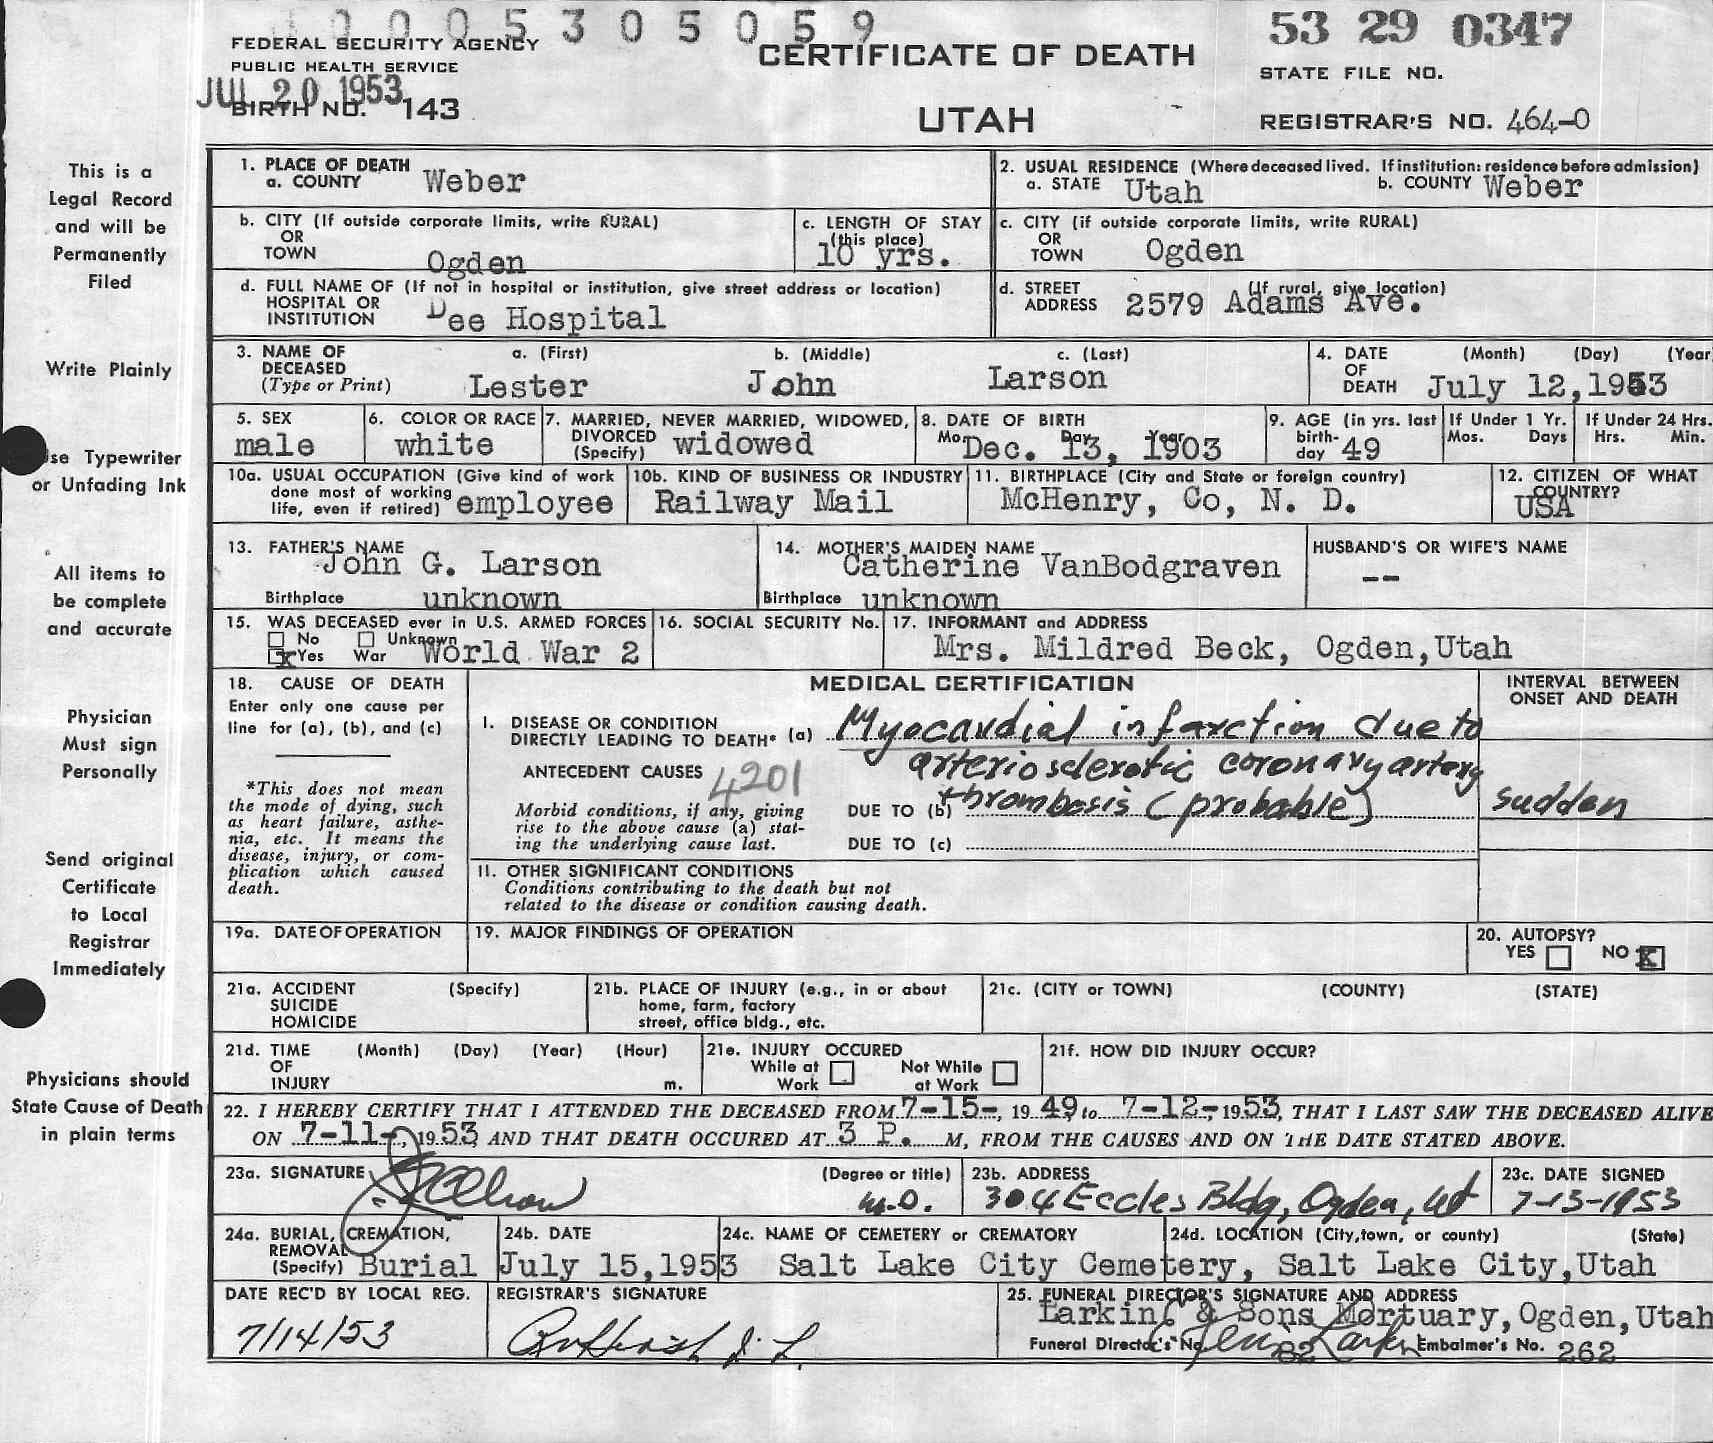 0005305059
53 29 0347
FEDERAL SECURITY AGENCY
PUBLIC HEALTH SERVICE
CERTIFICATE OF DEATH
STATE FILE NO.
JUL 20 1953
BIRTH NO. 143
UTAH
REGISTRAR'S NO. 464-0
This is a
Legal Record
and will be
Permanently
Filed
Write Plainly
Use Typewriter
or Unfading Ink
All items to
be complete
and accurate
Physician
Must sign
Personally
Send original
Certificate
to Local
Registrar
Immediately
Physicians should
State Cause of Death
in plain terms
1. PLACE OF DEATH
a. COUNTY Weber
2. USUAL RESIDENCE (Where deceased lived. If institution: residence before admission)
a. STATE Utah b. COUNTY Weber
b. CITY (If outside corporate limits, write RURAL)
OR
TOWN Ogden
c. LENGTH OF STAY
(this place)
10 yrs.
c. CITY (if outside corporate limits, write RURAL)
OR
TOWN Ogden
d. FULL NAME OF (If not in hospital or institution, give street address or location)
HOSPITAL OR
INSTITUTION Dee Hospital
d. STREET (If rural, give location)
ADDRESS 2579 Adams Ave.
3. NAME OF a. (First) b. (Middle) c. (Last)
DECEASED
(Type or Print) Lester John Larson
4. DATE (Month) (Day) (Year
OF
DEATH July 12,1953
5. SEX
male
6. COLOR OR RACE
white
7. MARRIED, NEVER MARRIED, WIDOWED,
DIVORCED
(Specify) widowed
8. DATE OF BIRTH
Mo. Day Year
Dec. 13, 1903
9. AGE (in yrs. last
birth-
day 49
If Under 1 Yr.
Mos. Days
If Under 24 Hrs.
Hrs. Min.
10a. USUAL OCCUPATION (Give kind of work
done most of working
life, even if retired) employee
10b. KIND OF BUSINESS OR INDUSTRY
Railway Mail
11. BIRTHPLACE (City and State or foreign country)
McHenry, Co, N. D.
12. CITIZEN OF WHAT
COUNTRY?
USA
13. FATHER'S NAME
John G. Larson
Birthplace unknown
14. MOTHER'S MAIDEN NAME
Catherine VanBodgraven
Birthplace unknown
HUSBAND'S OR WIFE'S NAME
--
15. WAS DECEASED ever in U.S. ARMED FORCES
No Unknown
x Yes War World War 2
16. SOCIAL SECURITY No.
17. INFORMANT and ADDRESS
Mrs. Mildred Beck, Ogden,Utah
18. CAUSE OF DEATH
Enter only one cause per
line for (a), (b), and (c)
*This does not mean
the mode of dying, such
as heart failure, asthe-
nia, etc. It means the
disease, injury, or com-
plication which caused
death.
MEDICAL CERTIFICATION
INTERVAL BETWEEN
ONSET AND DEATH
I. DISEASE OR CONDITION
DIRECTLY LEADING TO DEATH* (a) Myocardial infarction due to
ANTECEDENT CAUSES 4201 arteriosclerotic coronary artery
Morbid conditions, if any, giving
rise to the above cause (a) stat-
ing the underlying cause last.
DUE TO (b) thrombosis (probable) sudden
DUE TO (c)
II. OTHER SIGNIFICANT CONDITIONS
Conditions contributing to the death but not
related to the disease or condition causing death.
19a. DATE OF OPERATION
19. MAJOR FINDINGS OF OPERATION
20. AUTOPSY?
YES NO X
21a. ACCIDENT (Specify)
SUICIDE
HOMICIDE
21b. PLACE OF INJURY (e.g., in or about
home, farm, factory
street, office bldg., etc.
21c. (CITY or TOWN) (COUNTY) (STATE)
21d. TIME (Month) (Day) (Year) (Hour)
OF
INJURY m.
21e. INJURY OCCURED
While at Work Not While at Work
21f. HOW DID INJURY OCCUR?
22. I HEREBY CERTIFY THAT I ATTENDED THE DECEASED FROM 7-15-, 19 49, to 7-12-, 1953, THAT I LAST SAW THE DECEASED ALIVE
ON 7-11-, 1953, AND THAT DEATH OCCURED AT 3 P. M, FROM THE CAUSES AND ON THE DATE STATED ABOVE.
23a. SIGNATURE (Degree or title)
M.D.
23b. ADDRESS
304 Eccles Bldg, Ogden, Ut
23c. DATE SIGNED
7-13-1953
24a. BURIAL, CREMATION,
REMOVAL
(Specify) Burial
24b. DATE
July 15,1953
24c. NAME OF CEMETERY or CREMATORY
Salt Lake City Cemetery,
24d. LOCATION (City,town, or county) (State)
Salt Lake City,Utah
DATE REC'D BY LOCAL REG.
7/14/53
REGISTRAR'S SIGNATURE
25. FUNERAL DIRECTOR'S SIGNATURE AND ADDRESS
Larkin & Sons Mortuary,Ogden,Utah
Funeral Director's No. 82 Embalmer's No. 262